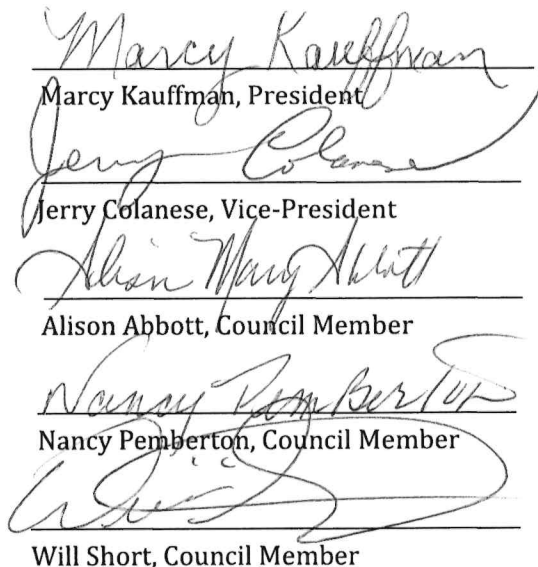 Marcy Kauffman
Marcy Kauffman, President
Jerry Colanese
Jerry Colanese, Vice-President
Alison Mary Abbott
Alison Abbott, Council Member
Nancy PemBerton
Nancy Pemberton, Council Member
Will Short, Council Member